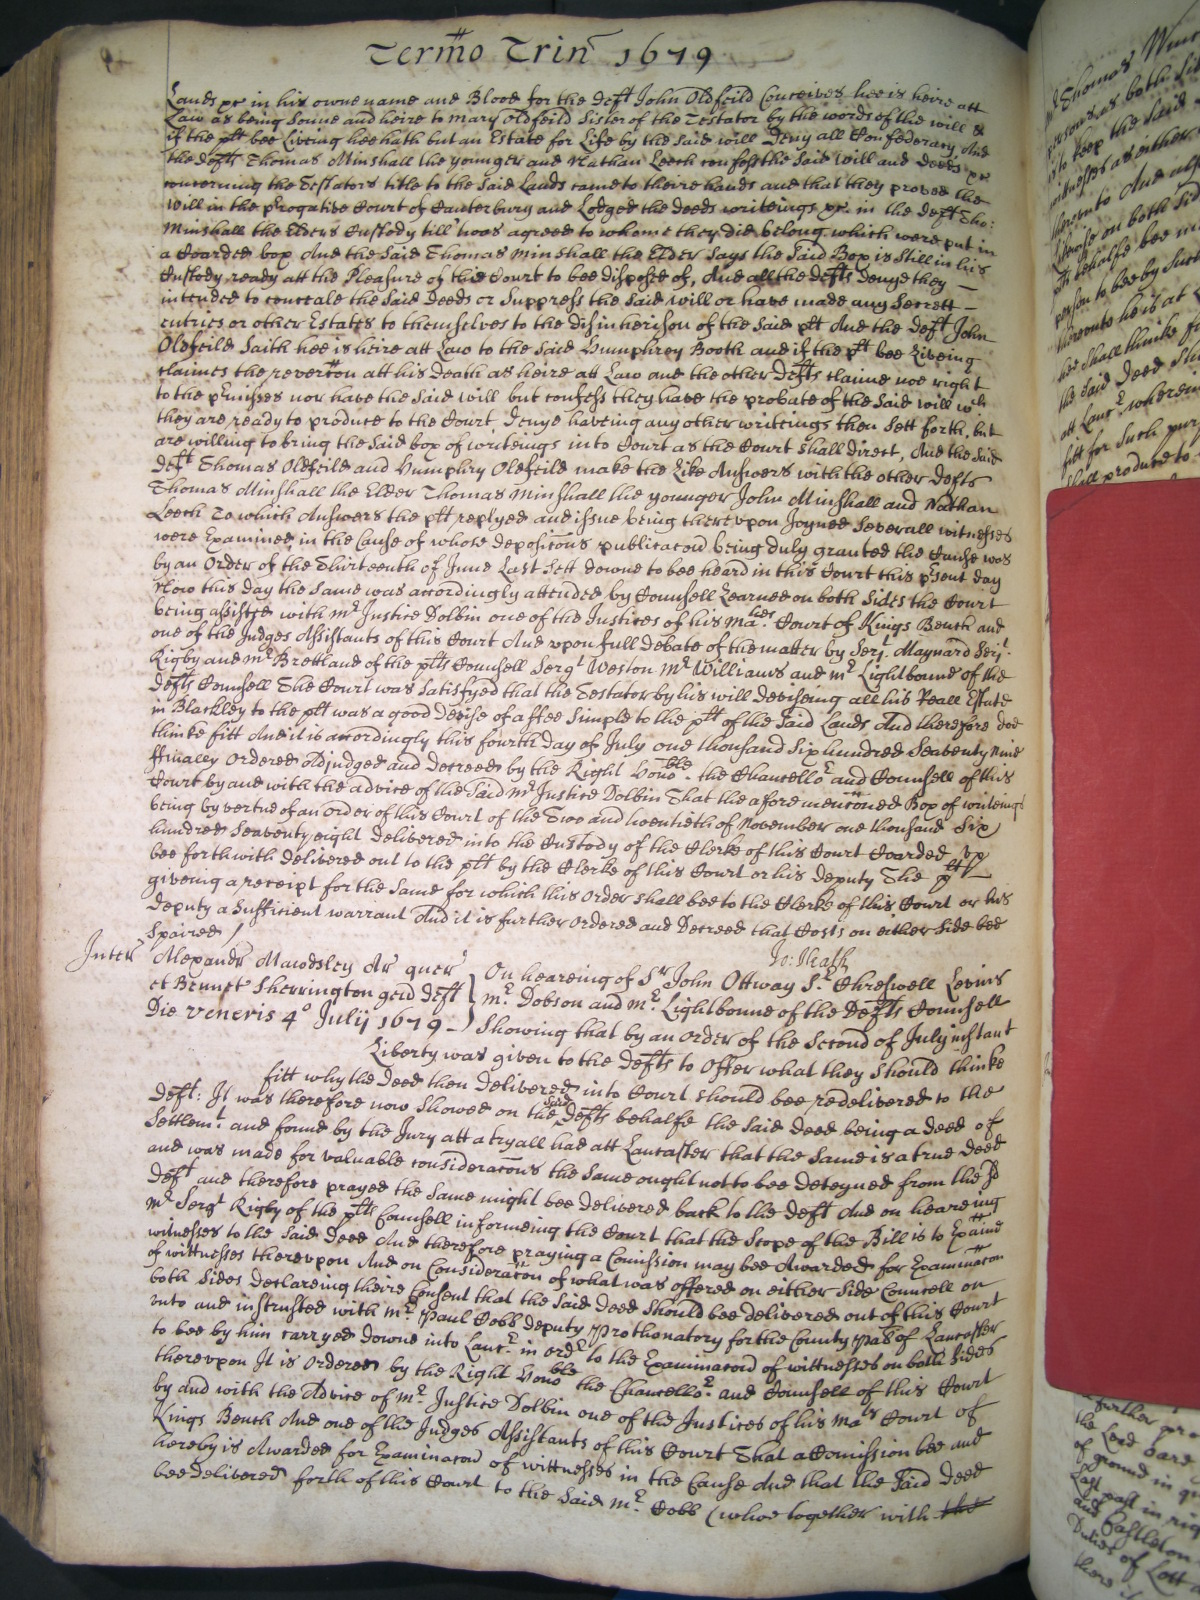 Termo Trin 1679
Lands &c in his owne name and Blood for the deft John Oldfeild Conceives hee is heire att
Law as being Sonne and heire to Mary Oldfeild Sister of the Testator by the words of the will &
if the plt bee Liveing hee hath but an Estate for Life by the said will Deny all Confederacy And
the defts Thomas Minshall the younger and Nathan Leech confess the said will and deeds &c
concerning the Testators title to the said Lands came to theire hands and that they proved the
will in the prerogative Court of Canterbury and Lodged the deeds writeings &c. in the deft Tho:
Minshall the Elders Custody till 'twas agreed to whome they did belong which were put in
a Coarded box And the said Thomas Minshall the Elder says the said Box is still in his
Custody ready att the Pleasure of this Court to bee disposed of, And all the defts denye they
intended to conceale the said deeds or suppress the said will or have made any Secrett
entries or other Estates to themselves to the disinherison of the said plt And the deft John
Oldfeild Saith hee is heire att Law to the said Humphrey Booth and if the plt bee Liveing
claimes the revercon att his Death as heire att Law and the other defts claime noe right
to the pmisses nor have the said will but confess they have the probate of the said will wch
they are ready to produce to the Court, denye haveing any other writeings then sett forth, but
are willing to bring the said box of writeings into Court as the Court shall direct, And the said
deft Thomas Oldfeild and Humphry Oldfeild make the Like Answers with the other defts
Thomas Minshall the Elder Thomas Minshall the younger John Minshall and Nathan
Leech To which Answers the plt replyed and issue being thereupon Joyned Severall witnesses
were Examined in the Cause of whose depositions publicacon being duly granted the Cause was
by an Order of the Thirteenth of June Last Sett downe to bee heard in this Court this psent day
Now this day the same was accordingly attended by Counsell Learned on both Sides the Court
being assisted with mr Justice Dolbin one of the Justices of his Maties Court of Kings Bench and
one of the Judges Assistants of this Court And upon full debate of the matter by Serjt Maynard Serjt
Rigby and mr Brettland of the plts Counsell Sergt Weston mr Williams and mr Lightbourne of the
defts Counsell The Court was Satisfyed that the Testator by his will deviseing all his Reall Estate
in Blackley to the plt was a good devise of a ffee Simple to the plt of the said Lands And therefore doe
thinke fitt And it is accordingly this fourth day of July one thousand Six hundred Seaventy Nine
ffinally Ordered Adjudged and decreed by the Right Honoble. the Chancellor and Counsell of this
Court by and with the advice of the said mr Justice Dolbin That the afore mencioned Box of writeings
being by vertue of an order of this Court of the Two and twentieth of November one thousand Six
hundred Seaventy eight delivered into the Custody of the Clerke of this Court Coarded up
bee forthwith delivered out to the plt by the Clerke of this Court or his deputy The plt
giveing a receipt for the same for which this Order shall bee to the Clerke of this Court or his
deputy a Sufficient warrant And it is further Ordered and decreed that Costs on either Side bee
Spaired /
Jo: Heath
Inter Alexandr Mawdsley Ar quer
et Bennet Sherrington gen deft
Die Veneris 4o Julij 1679
On heareing of Sr John Ottway Sr Chreswell Levins
mr. Dobson and mr. Lightbourne of the Defts Counsell
Showing that by an Order of the Second of July instant
Liberty was given to the defts to Offer what they should thinke
fitt why the Deed then delivered into Court should bee redelivered to the
Deft: It was therefore now Showed on the said Defts behalfe the said deed being a deed of
Settlemt. and found by the Jury att a tryall had att Lancaster that the same is a true deed
and was made for valuable consideracons the same ought not to bee deteyned from the sd
deft and therefore prayed the same might bee delivered back to the deft And on heareing
mr Sergt Rigby of the plts Counsell informeing the Court that the Scope of the Bill is to Examine
witnesses to the said deed And therefore praying a Comission may bee Awarded for Examinacon
of wittnesses thereupon And on Consideracon of what was offered on either Side Councell on
both Sides declareing theire Consent that the said deed should bee delivered out of this Court
unto and instrusted with mr. Paul Cobb deputy Prothonatory for the County Pal. of Lancaster
to bee by him carryed downe into Lancr. in ordr to the Examinacon of wittnesses on both Sides
thereupon It is Ordered by the Right Honoble the Chancellor. and Counsell of this Court
by and with the Advice of mr. Justice Dolbin one of the Justices of his Mats Court of
Kings Bench And one of the Judges Assistants of this Court That a Comission bee and
hereby is Awarded for Examinacon of wittnesses in the Cause And that the said deed
bee delivered forth of this Court to the said mr. Cobb (whoe together with the